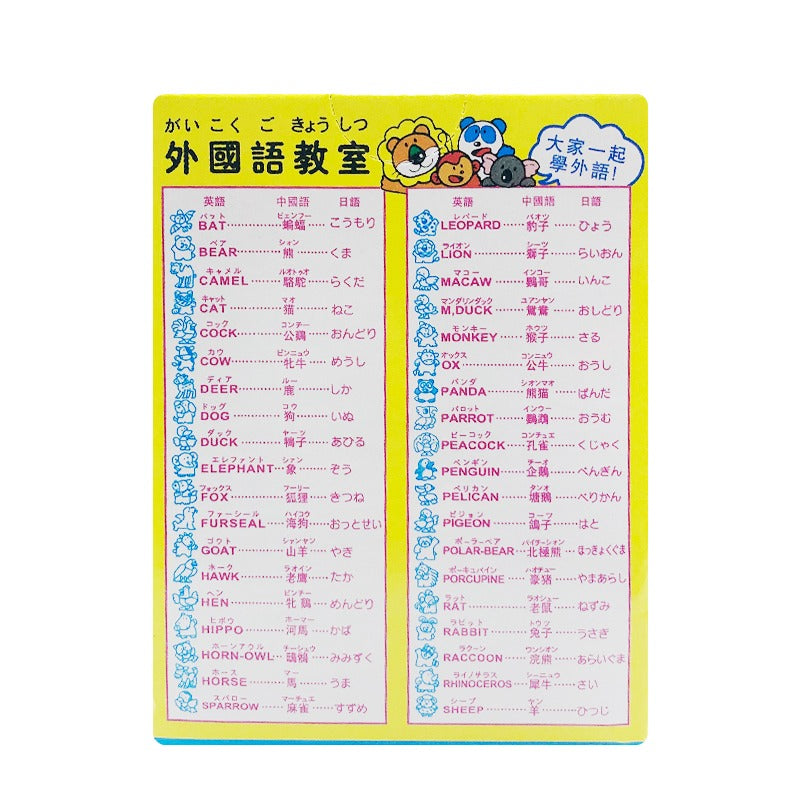 がい こく ご きょう しつ
外國語教室
大家一起
學外語!
英語 中國語 日語
バット ビェンフー
BAT 蝙蝠 こうもり
ベア シォン
BEAR 熊 くま
キャメル ルオトゥオ
CAMEL 駱駝 らくだ
キャット マオ
CAT 猫 ねこ
コック コンチー
COCK 公鷄 おんどり
カウ ピンニュウ
COW 牝牛 めうし
ディア ルー
DEER 鹿 しか
ドッグ コウ
DOG 狗 いぬ
ダック ヤーツ
DUCK 鴨子 あひる
エレファント シャン
ELEPHANT 象 ぞう
フォックス フーリー
FOX 狐狸 きつね
ファーシール ハイコウ
FURSEAL 海狗 おっとせい
ゴウト シャンヤン
GOAT 山羊 やぎ
ホーク ラオイン
HAWK 老鷹 たか
ヘン ピンチー
HEN 牝鷄 めんどり
ヒポウ ホーマー
HIPPO 河馬 かば
ホーンアウル チーシュウ
HORN-OWL 鴟鵂 みみずく
ホース マー
HORSE 馬 うま
スパロー マーチュエ
SPARROW 麻雀 すずめ
英語 中國語 日語
レパード パオツ
LEOPARD 豹子 ひょう
ライオン シーツ
LION 獅子 らいおん
マコー インコー
MACAW 鸚哥 いんこ
マンダリンダック ユアンヤン
M,DUCK 鴛鴦 おしどり
モンキー ホウツ
MONKEY 猴子 さる
オックス コンニュウ
OX 公牛 おうし
パンダ シオンマオ
PANDA 熊猫 ぱんだ
パロット インウー
PARROT 鸚鵡 おうむ
ピーコック コンチュエ
PEACOCK 孔雀 くじゃく
ペンギン チーオ
PENGUIN 企鵝 ぺんぎん
ペリカン タンオ
PELICAN 塘鵝 ぺりかん
ピジョン コーツ
PIGEON 鴿子 はと
ポーラーベア パイチーション
POLAR-BEAR 北極熊 ほっきょくぐま
ポーキュパイン ハオチュー
PORCUPINE 豪猪 やまあらし
ラット ラオシュー
RAT 老鼠 ねずみ
ラビット トウツ
RABBIT 兔子 うさぎ
ラクーン ワンシオン
RACCOON 浣熊 あらいぐま
ライノサラス シーニュウ
RHINOCEROS 犀牛 さい
シープ ヤン
SHEEP 羊 ひつじ